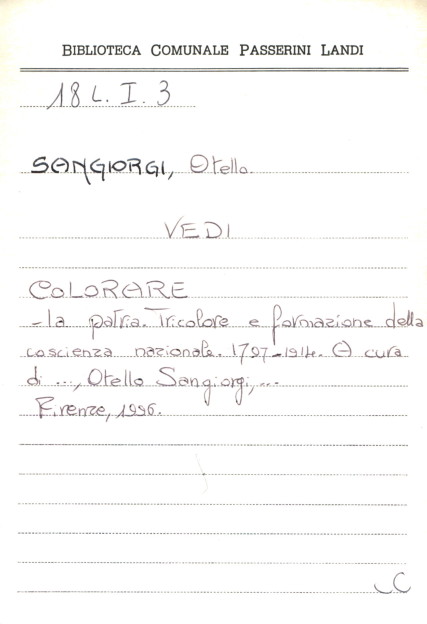 BIBLIOTECA COMUNALE PASSERINI LANDI
18 L. I. 3
SANGIORGI, Otello.
VEDI
COLORARE
- la patria. Tricolore e formazione della
coscienza nazionale. 1797-1914. A cura
di ..., Otello Sangiorgi, ...
Firenze, 1996.